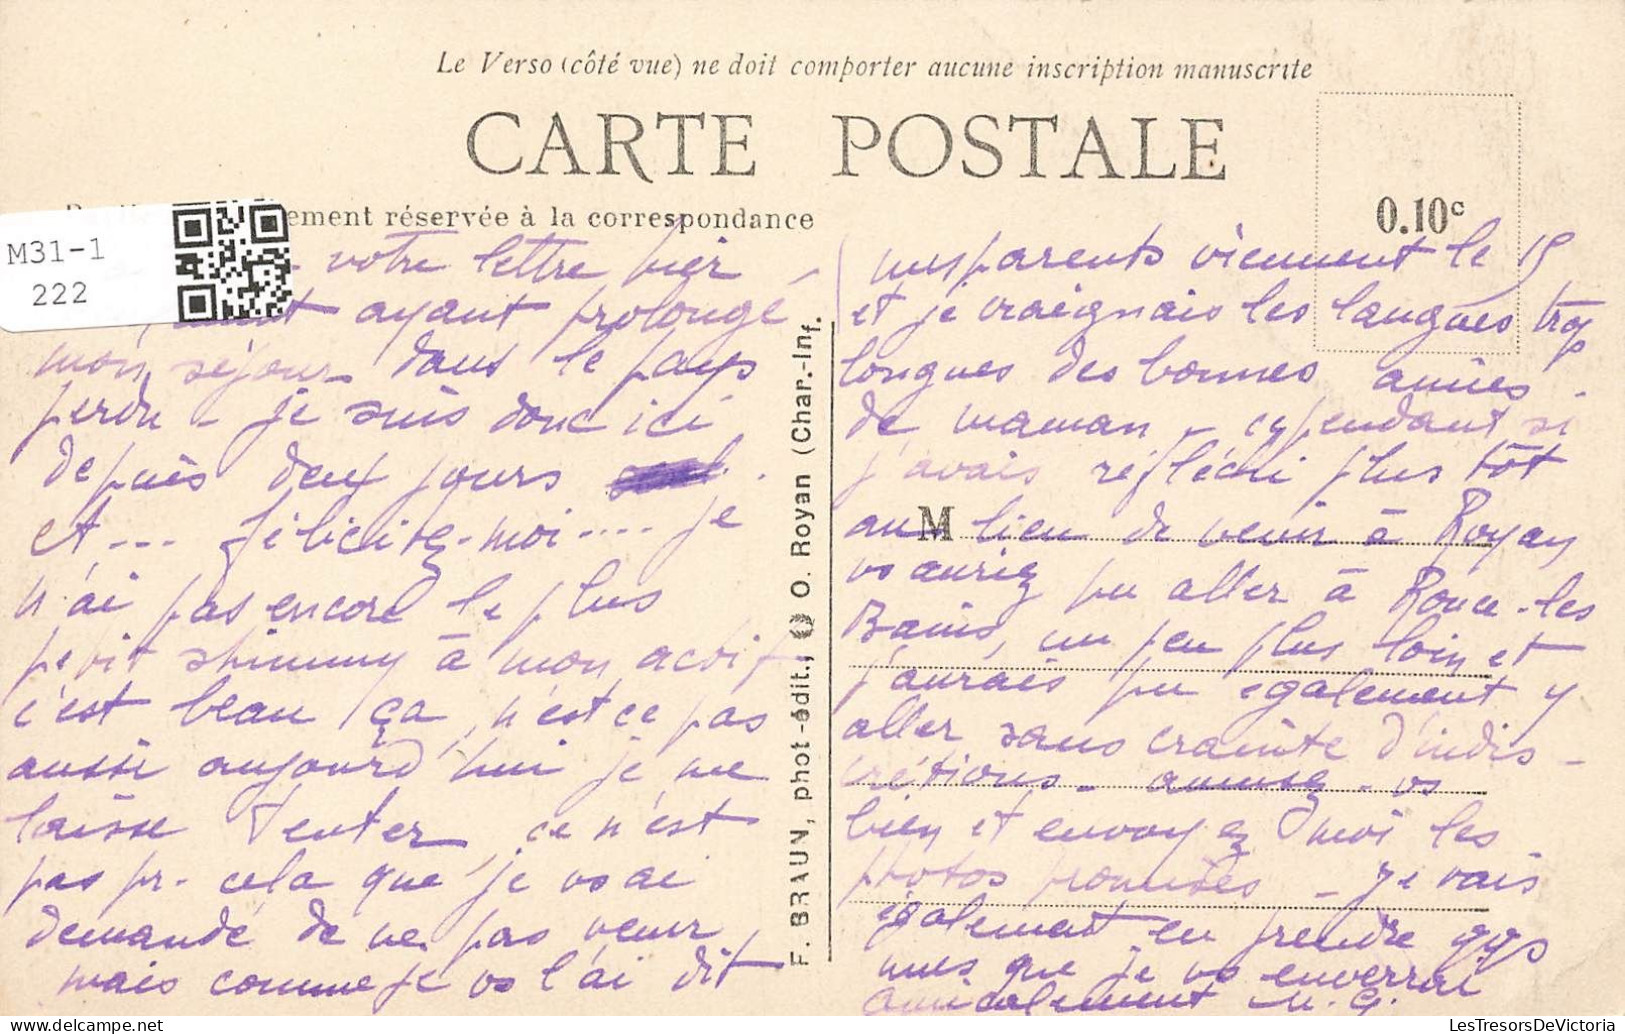 Le Verso (côté vue) ne doit comporter aucune inscription manuscrite
CARTE POSTALE
ement réservée à la correspondance
0.10c
M31-1
222
votre lettre hier
ayant prolongé
mon séjour dans le pays
perdu - je suis donc ici
depuis deux jours
et ... félicitez-moi .... je
n'ai pas encore le plus
petit shimmy à mon actif
c'est beau ça, n'est ce pas
aussi aujourd'hui je me
laisse tenter, ce n'est
pas pr. cela que je vs ai
demandé de ne pas venir
mais comme je vs l'ai dit
F. BRAUN, phot.-édit., O. Royan (Char.-Inf.
mes parents viennent le 15
et je craignais les langues trop
longues des bonnes amies
de maman - cependant si
j'avais réfléchi plus tôt
M
au lieu de venir à Royan
vs auriez pu aller à Ronce-les
Bains, un peu plus loin et
j'aurais pu également y
aller sans crainte d'indis-
crétions - amusez-vs
bien et envoyez moi les
photos promises - je vais
également en prendre qqs
unes que je vs enverrai
amicalement M. G.
LesTresorsDeVictoria